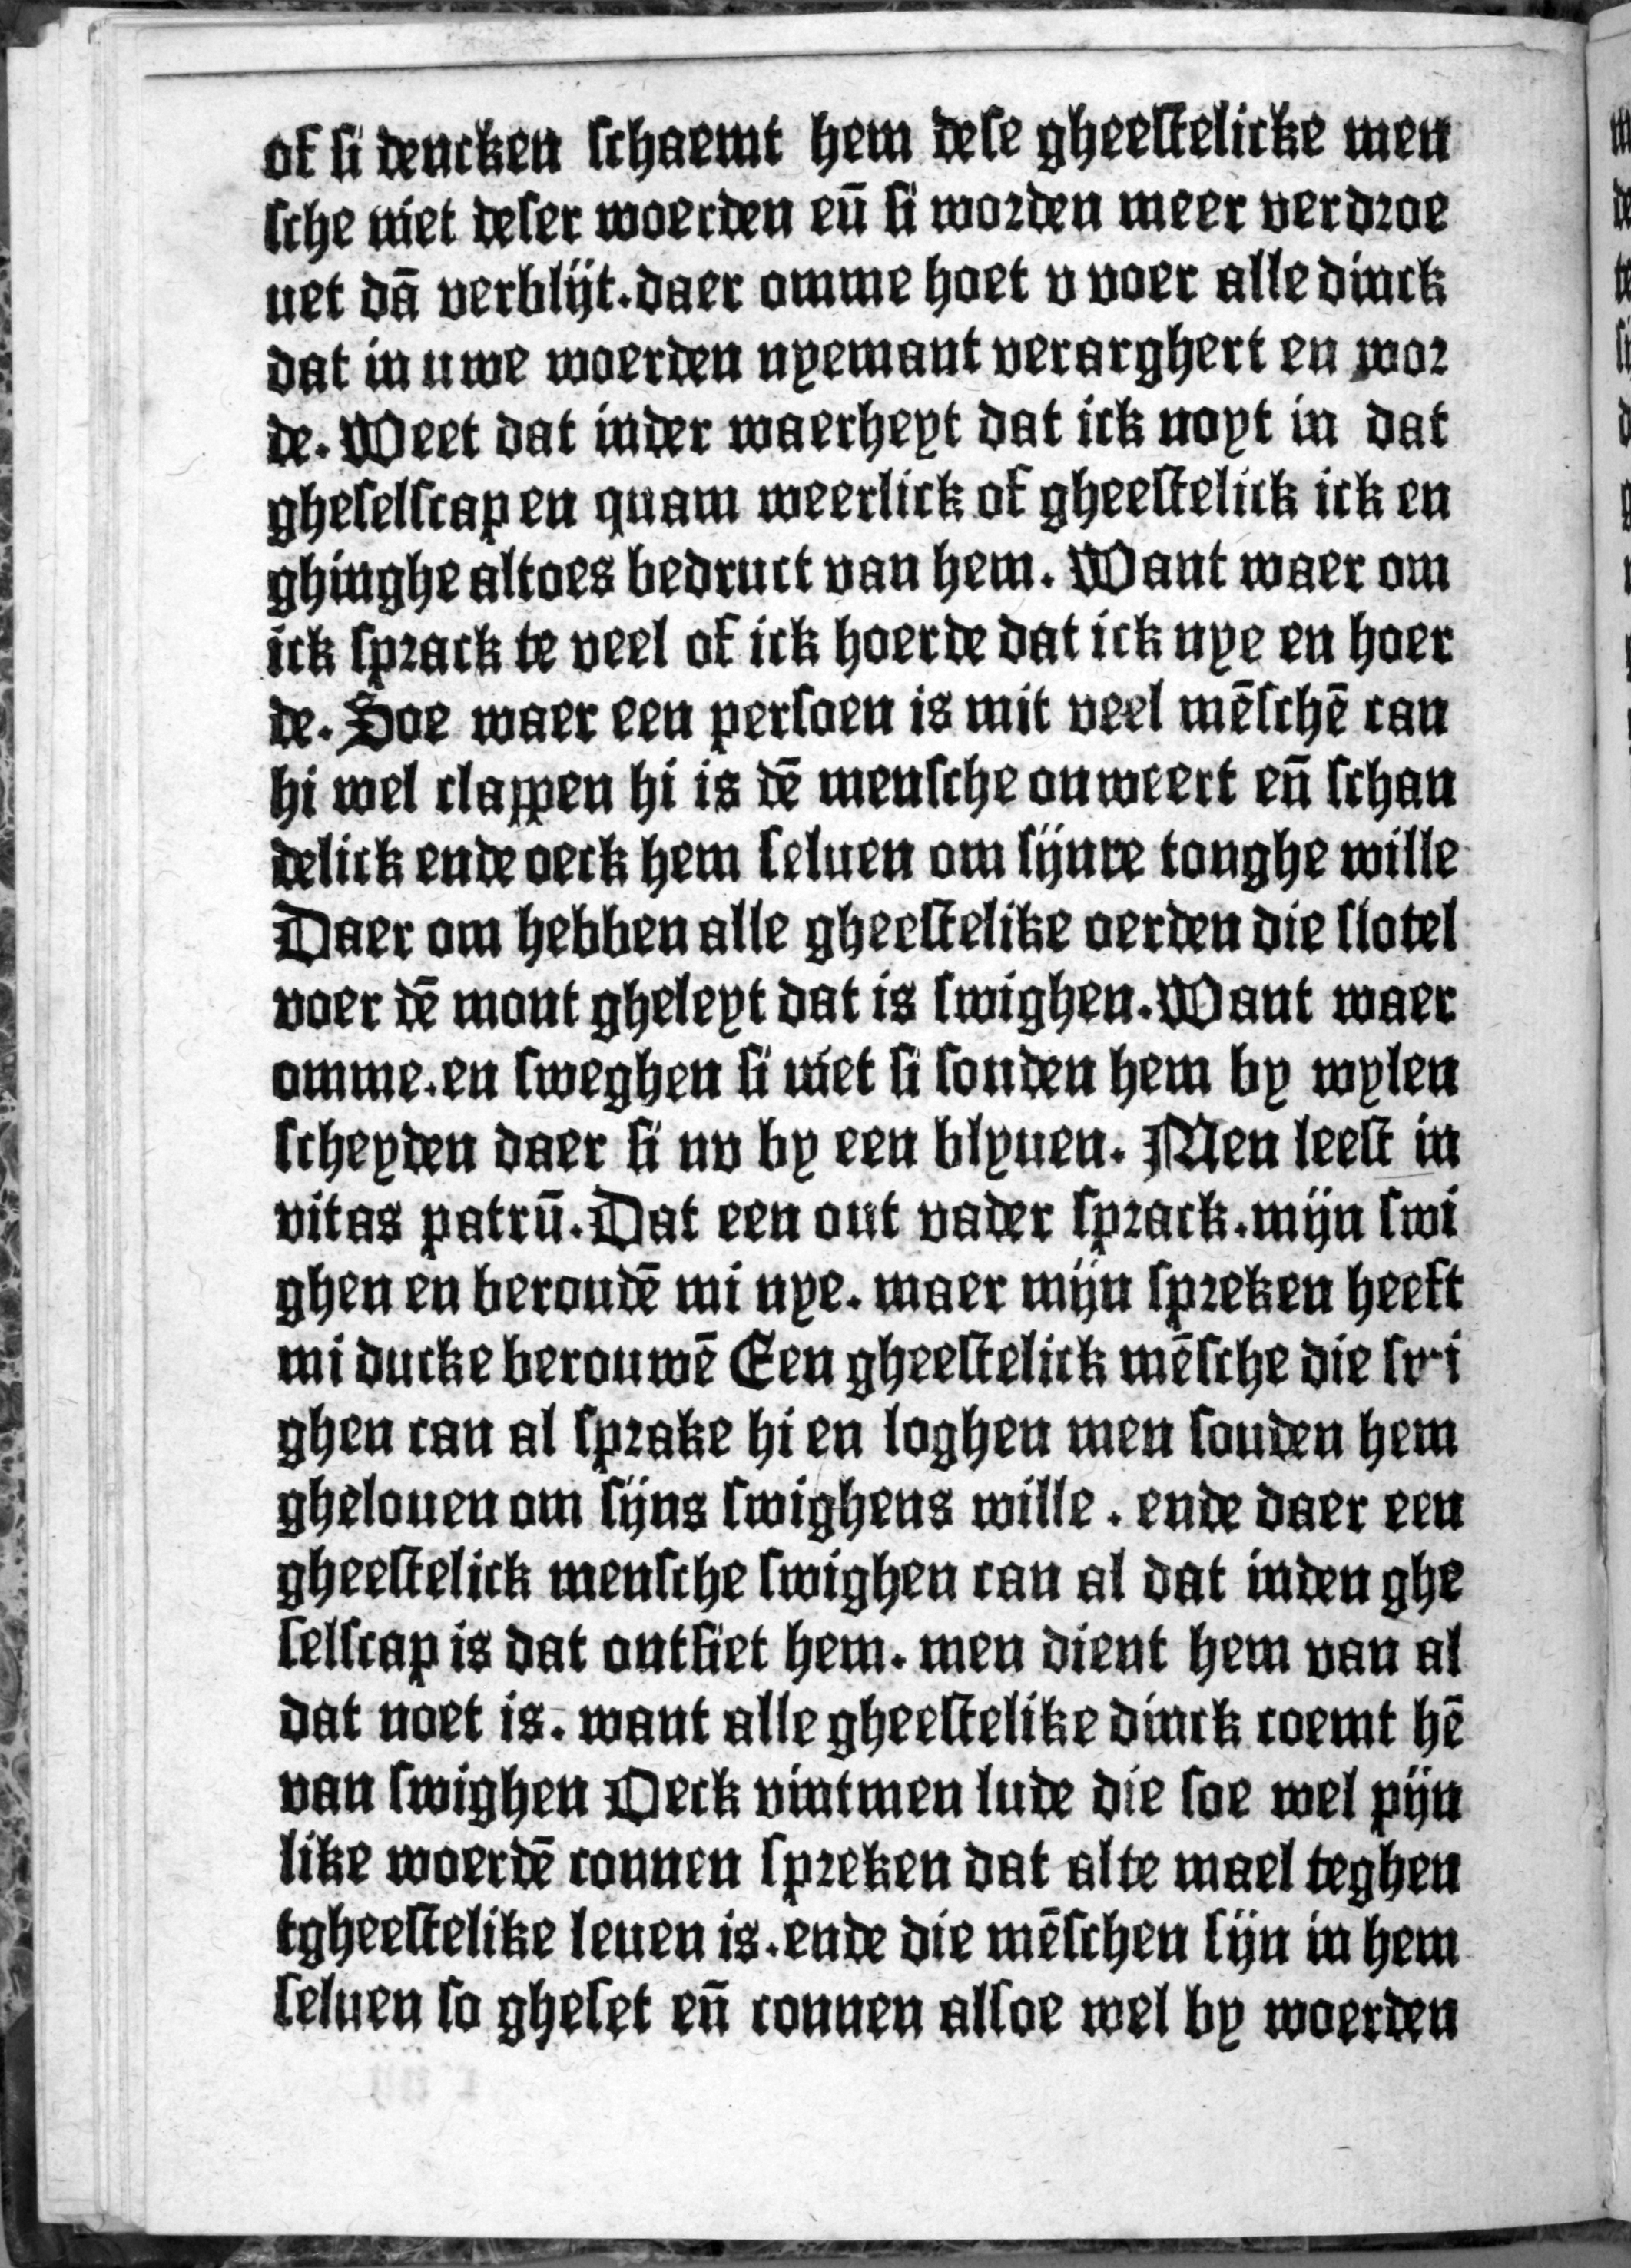 of si dencken schaemt hem dese gheestelicke men
sche niet deser woerden eñ si worden meer verdroe
uet dā verblijt.daer omme hoet v voer alle dinck
dat in uwe woerden nyemant verarghert en wor
de. Weet dat inder waerheyt dat ick noyt in dat
gheselscap en quam weerlick of gheestelick ick en
ghinghe altoes bedruct van hem. Want waer om
ick sprack te veel of ick hoerde dat ick nye en hoer
de. Soe waer een persoen is mit veel mēschē can
hi wel clappen hi is dē mensche onweert eñ schan
delick ende oeck hem seluen om sijnre tonghe wille
Daer om hebben alle gheestelike oerden die slotel
voer dē mont gheleyt dat is swighen. Want waer
omme.en sweghen si niet si souden hem by wylen
scheyden daer si nv by een blyuen. Men leest in
vitas patrū. Dat een out vader sprack.mijn swi
ghen en beroudē mi nye. maer mijn spreken heeft
mi ducke berouwē Een gheestelick mēsche die swi
ghen can al sprake hi en loghen men souden hem
ghelouen om sijns swighens wille . ende daer een
gheestelick mensche swighen can al dat inden ghe
selscap is dat ontsiet hem. men dient hem van al
dat noet is. want alle gheestelike dinck coemt hē
van swighen Oeck vintmen lude die soe wel pijn
like woerdē connen spreken dat alte mael teghen
tgheestelike leuen is.ende die mēschen sijn in hem
seluen so gheset eñ connen alsoe wel by woerden